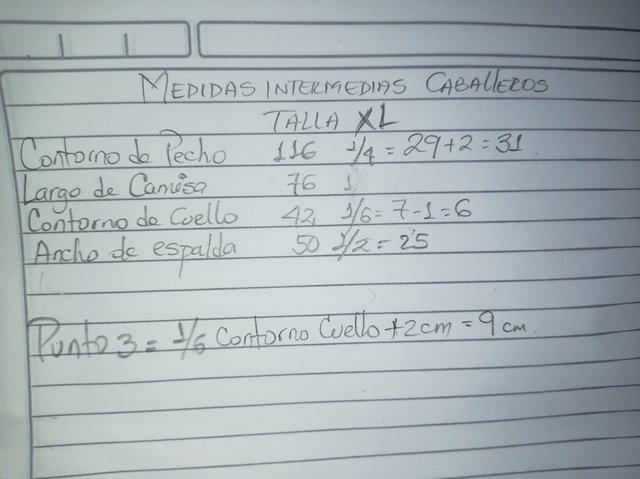 MEDIDAS INTERMEDIAS CABALLEROS
TALLA XL
Contorno de Pecho 116 1/4 = 29+2 = 31
Largo de Camisa 76
Contorno de Cuello 42 1/6 = 7-1 = 6
Ancho de espalda 50 1/2 = 25
Punto 3 = 1/6 Contorno Cuello + 2 cm = 9 cm.